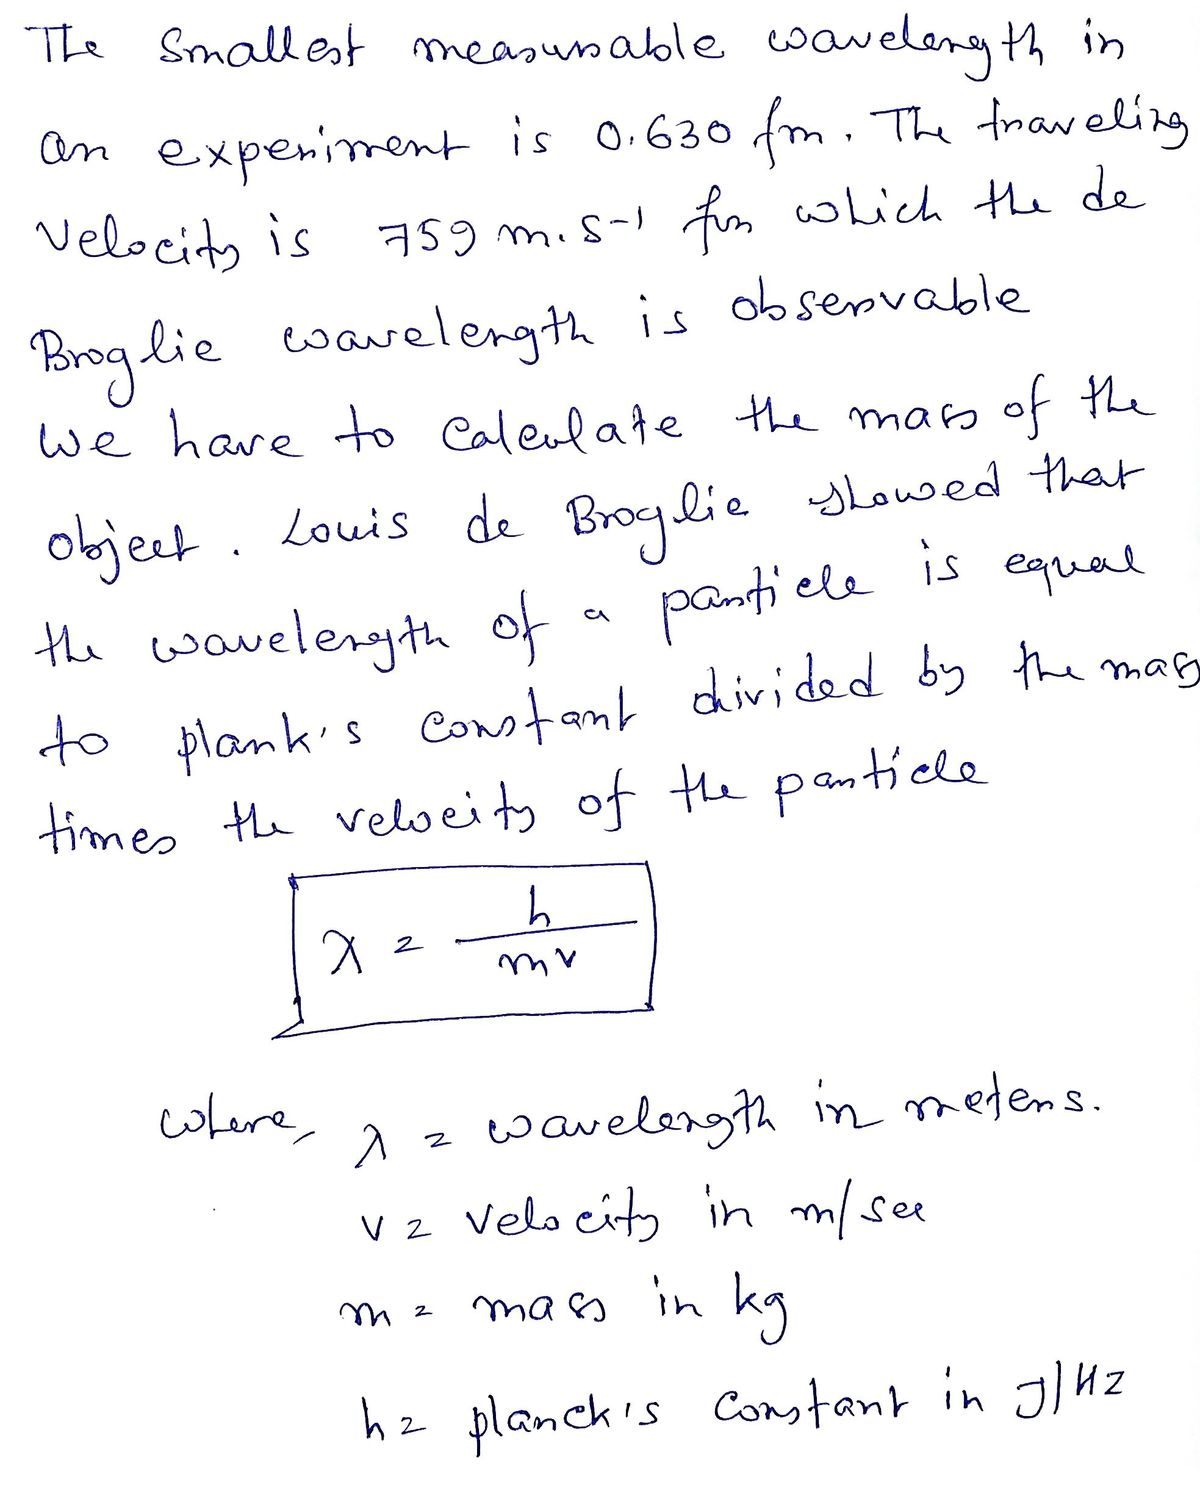 The smallest measurable wavelength in
an experiment is 0.630 fm. The traveling
velocity is 759 m.s-1 for which the de
Broglie wavelength is observable
we have to calculate the mass of the
object. Louis de Broglie showed that
the wavelength of a particle is equal
to plank's constant divided by the mass
times the velocity of the particle
λ = h/mv
where, λ = wavelength in meters.
v = velocity in m/sec
m = mass in kg
h = planck's constant in J/Hz